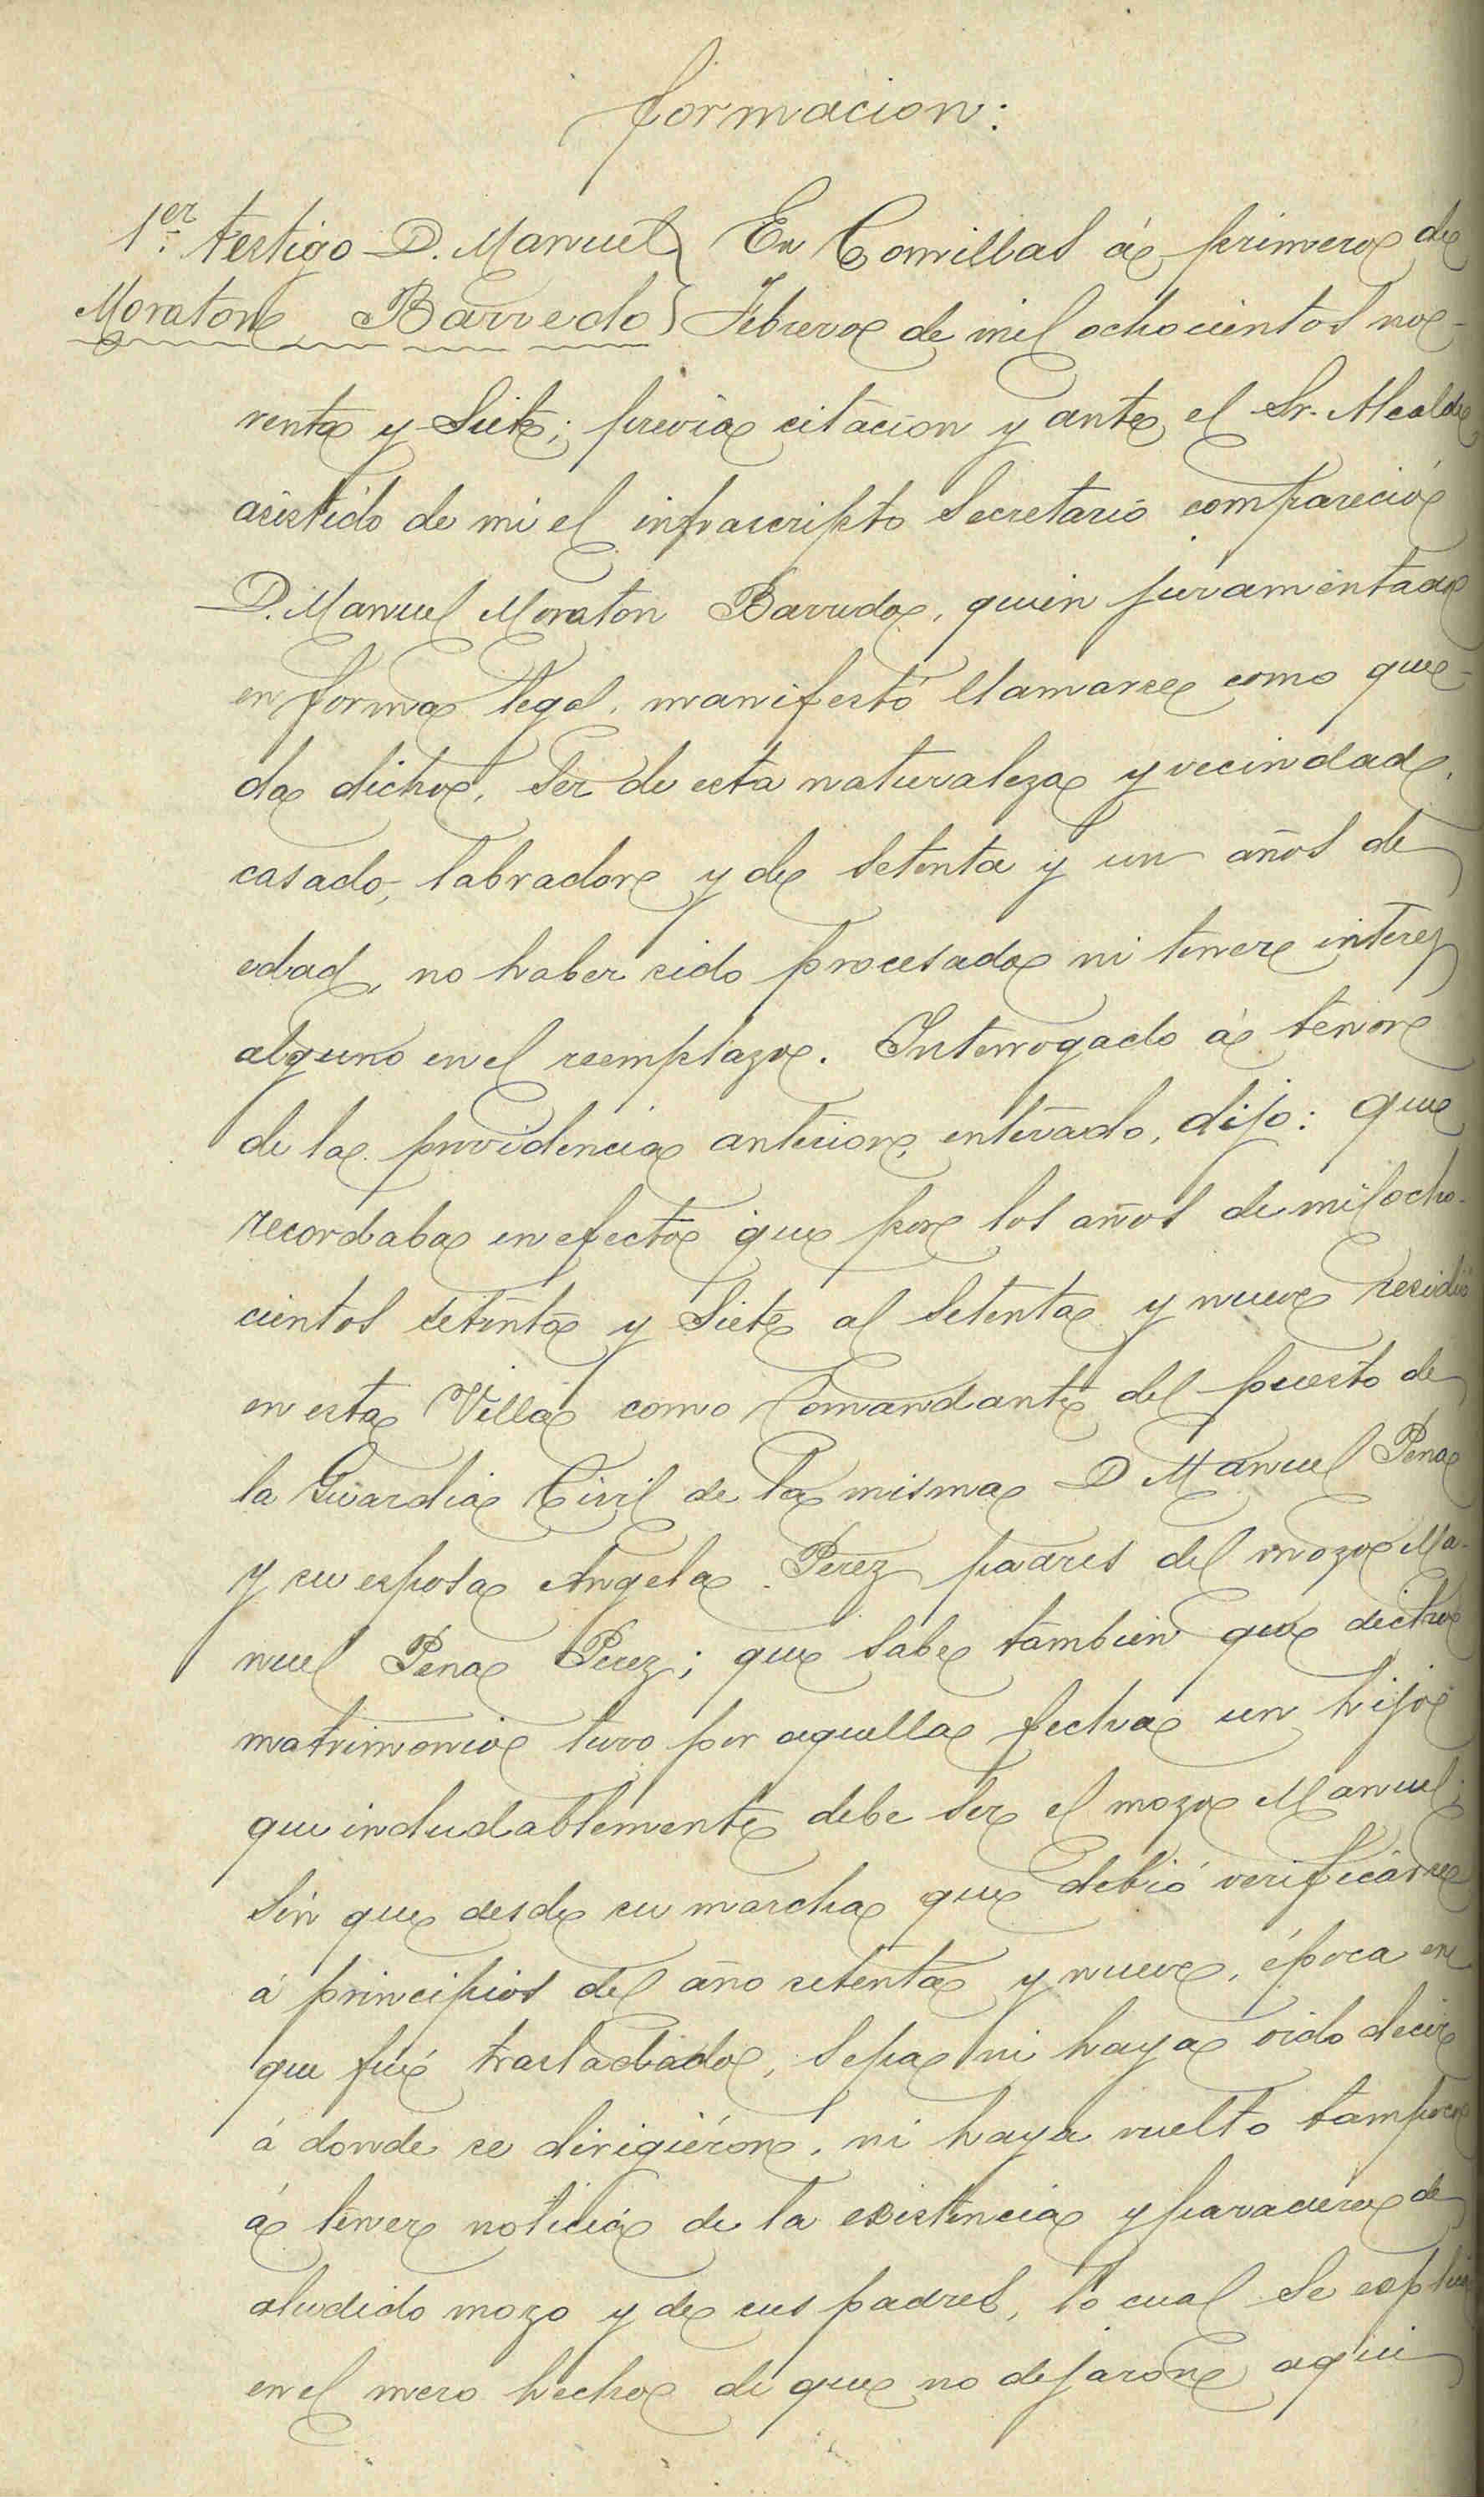 formacion:
1.er testigo D. Manuel
Moraton Barredo
En Comillas á primero de
Febrero de mil ochocientos no-
venta y Siete; previa citacion y ante el Sr. Alcalde
asistido de mi el infrascripto Secretario compareció
D. Manuel Moraton Barredo, quien juramentado
en forma legal, manifestó llamarse como que-
da dicho, ser de esta naturaleza y vecindad,
casado, labrador y de setenta y un años de
edad, no haber sido procesado ni tener interez
alguno en el reemplazo. Interrogado á tenor
de la providencia anterior, enterado, dijo: que
recordaba en efecto que por los años de mil ocho-
cientos setenta y Siete al setenta y nueve residió
en esta Villa como Comandante del puesto de
la Guardia Civil de la misma D Manuel Pena
y su esposa Angela Perez padres del mozo Ma-
nuel Pena Perez; que sabe tambien que dicho
matrimonio tuvo por aquella fecha un hijo
que indudablemente debe ser el mozo Manuel;
sin que desde su marcha que debió verificarse
á principios del año setenta y nueve, época en
que fué trasladado, sepa ni haya oido decir
á donde se dirigieron, ni haya vuelto tampoco
á tener noticia de la existencia y paradero de
aludido mozo y de sus padres, lo cual se explica
en el mero hecho de que no dejaron aqui